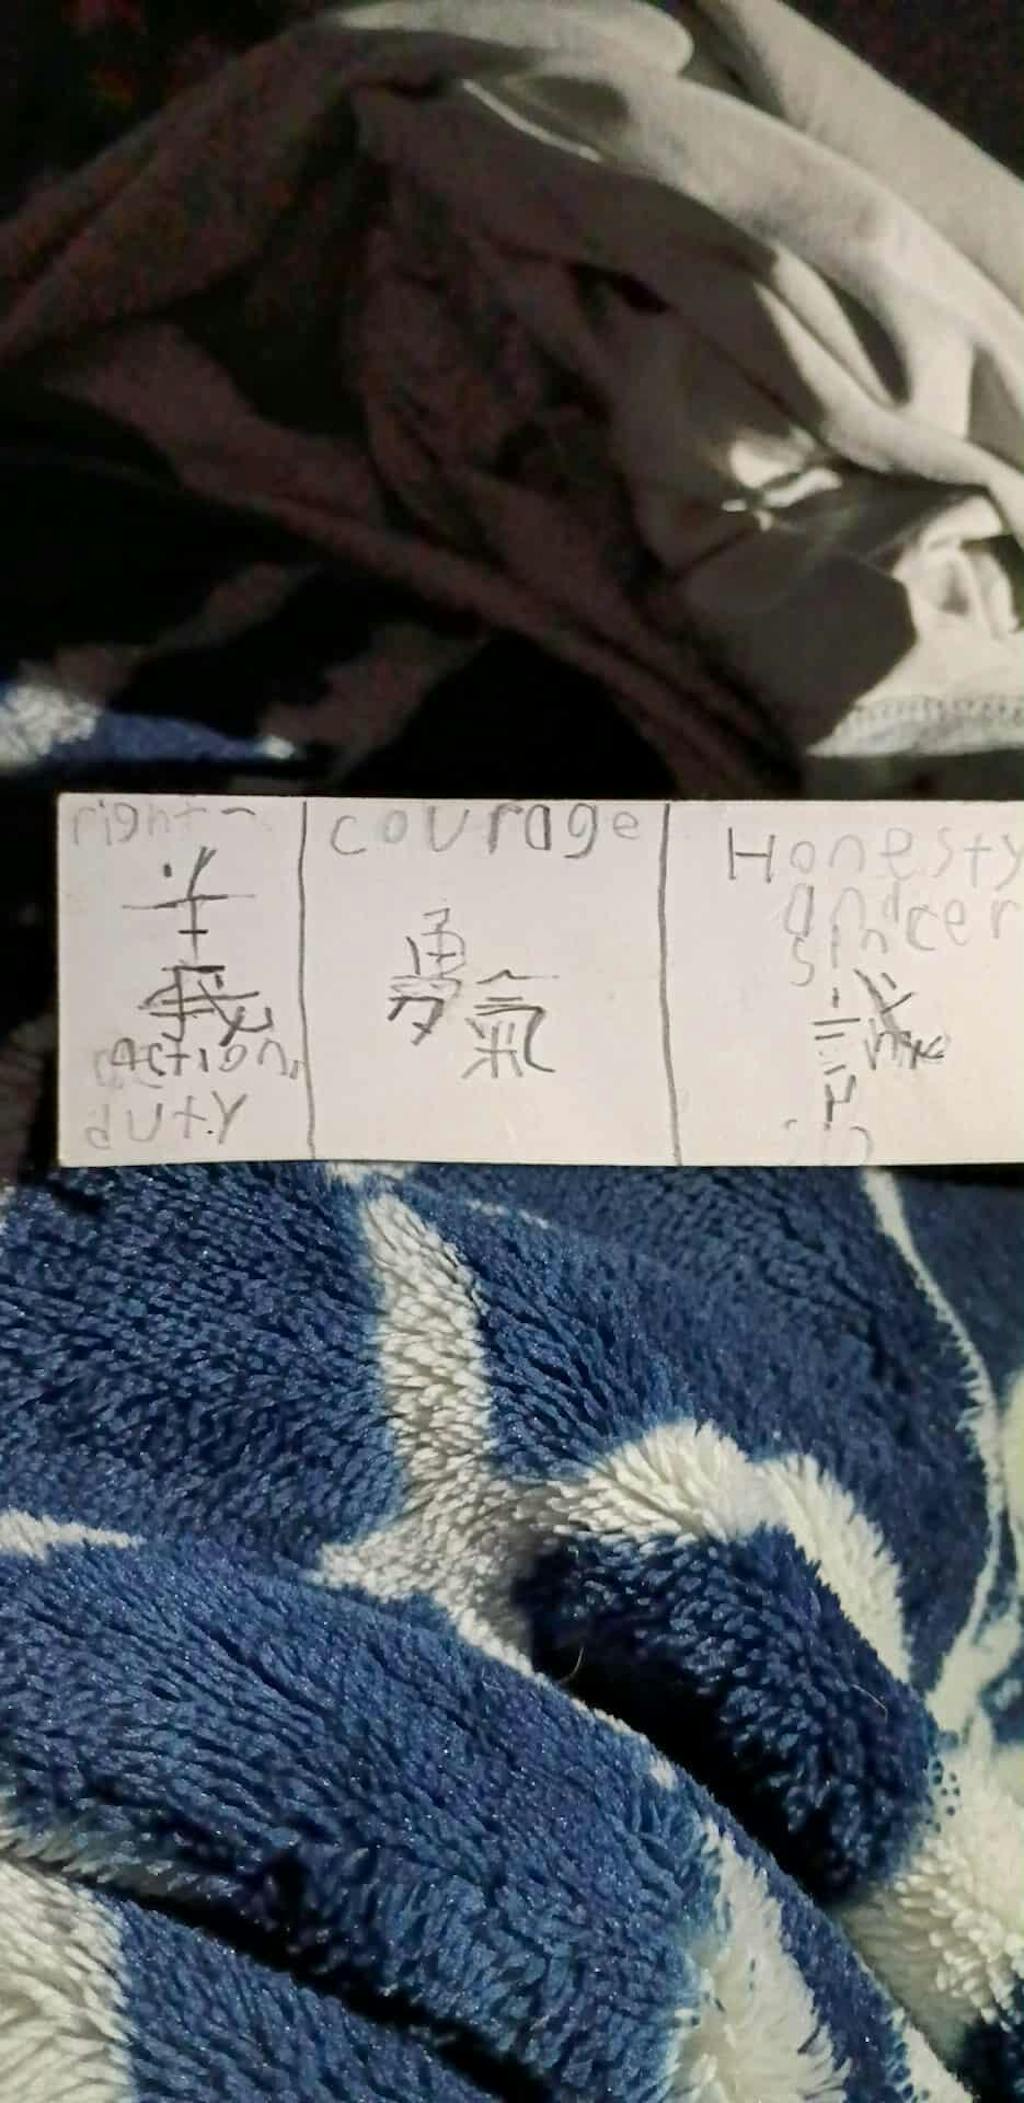 right
義
action,
duty
courage
勇氣
Honesty
and
sincer
誠